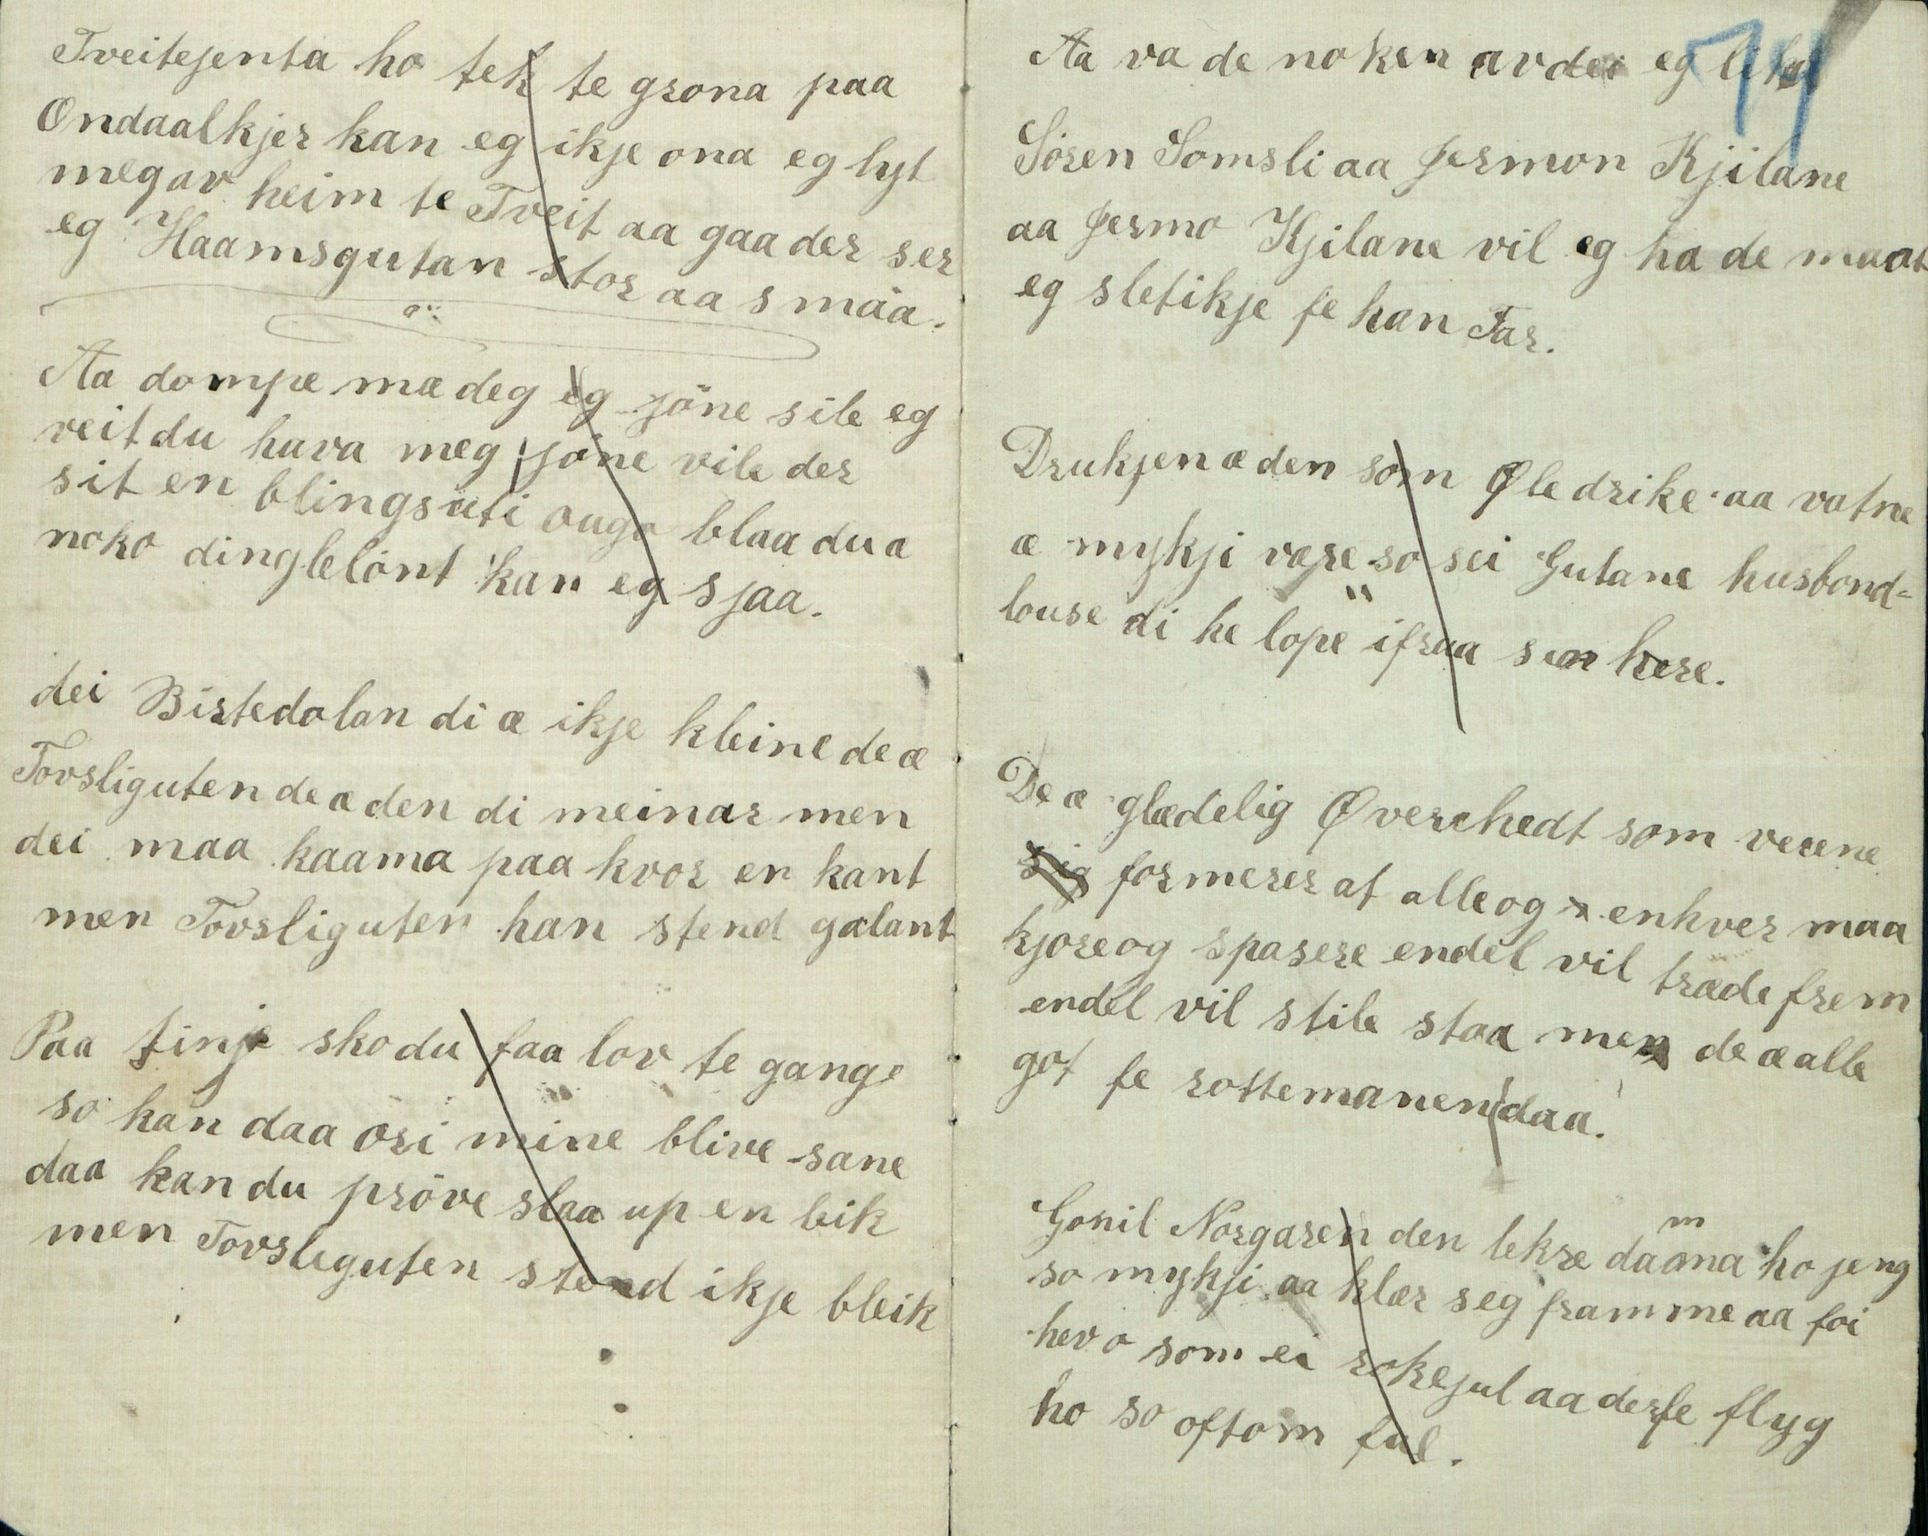 Tveitejenta ho tek te grona paa
Ondaalkjer kan eg ikje ona eg lyt
megav heim te Tveit aa gaa der ser
eg Haamsgutan stor aa smaa.
Aa dompe mæ deg eg jöne sile eg
veit du hava meg jöne vile der
sit en blingsuti ougo blaa du a
noko dinglelönt kan eg sjaa.
dei Birtedolan di æ ikje kleine de æ
Tovsliguten de æ den di meinar men
dei maa kaama paa kvor en kant
men Tovsliguten han stend galant
Paa tinje sko du faa lov te gange
so kan daa ori mine blive sane
daa kan du pröve slaa up en leik
men Tovsleguten stend ikje bleik
74
Aa va de noken av dei eg lika
Sören Somsli aa Jermon Kjilane
aa Jermo Kjilane vil eg ha de maat
eg slet ikje fe han Far.
Drukjen æ den som Øle drike aa vatne
æ mykji være so sei Gutane husbond=
louse di he lope ifraa sin here.
De æ glædelig Øverchedt som verene
sig formerer at alle og enhver maa
kjore og spasere endel vil træde frem
endel vil stile staa men de æ alle
got fe rottemanen daa.
Gonil Norgaren den lekre daama ho jeng
m
so mykji aa klær seg framme aa foi
hev o som ei rokejul aa derfe flyg
ho so oftom ful.